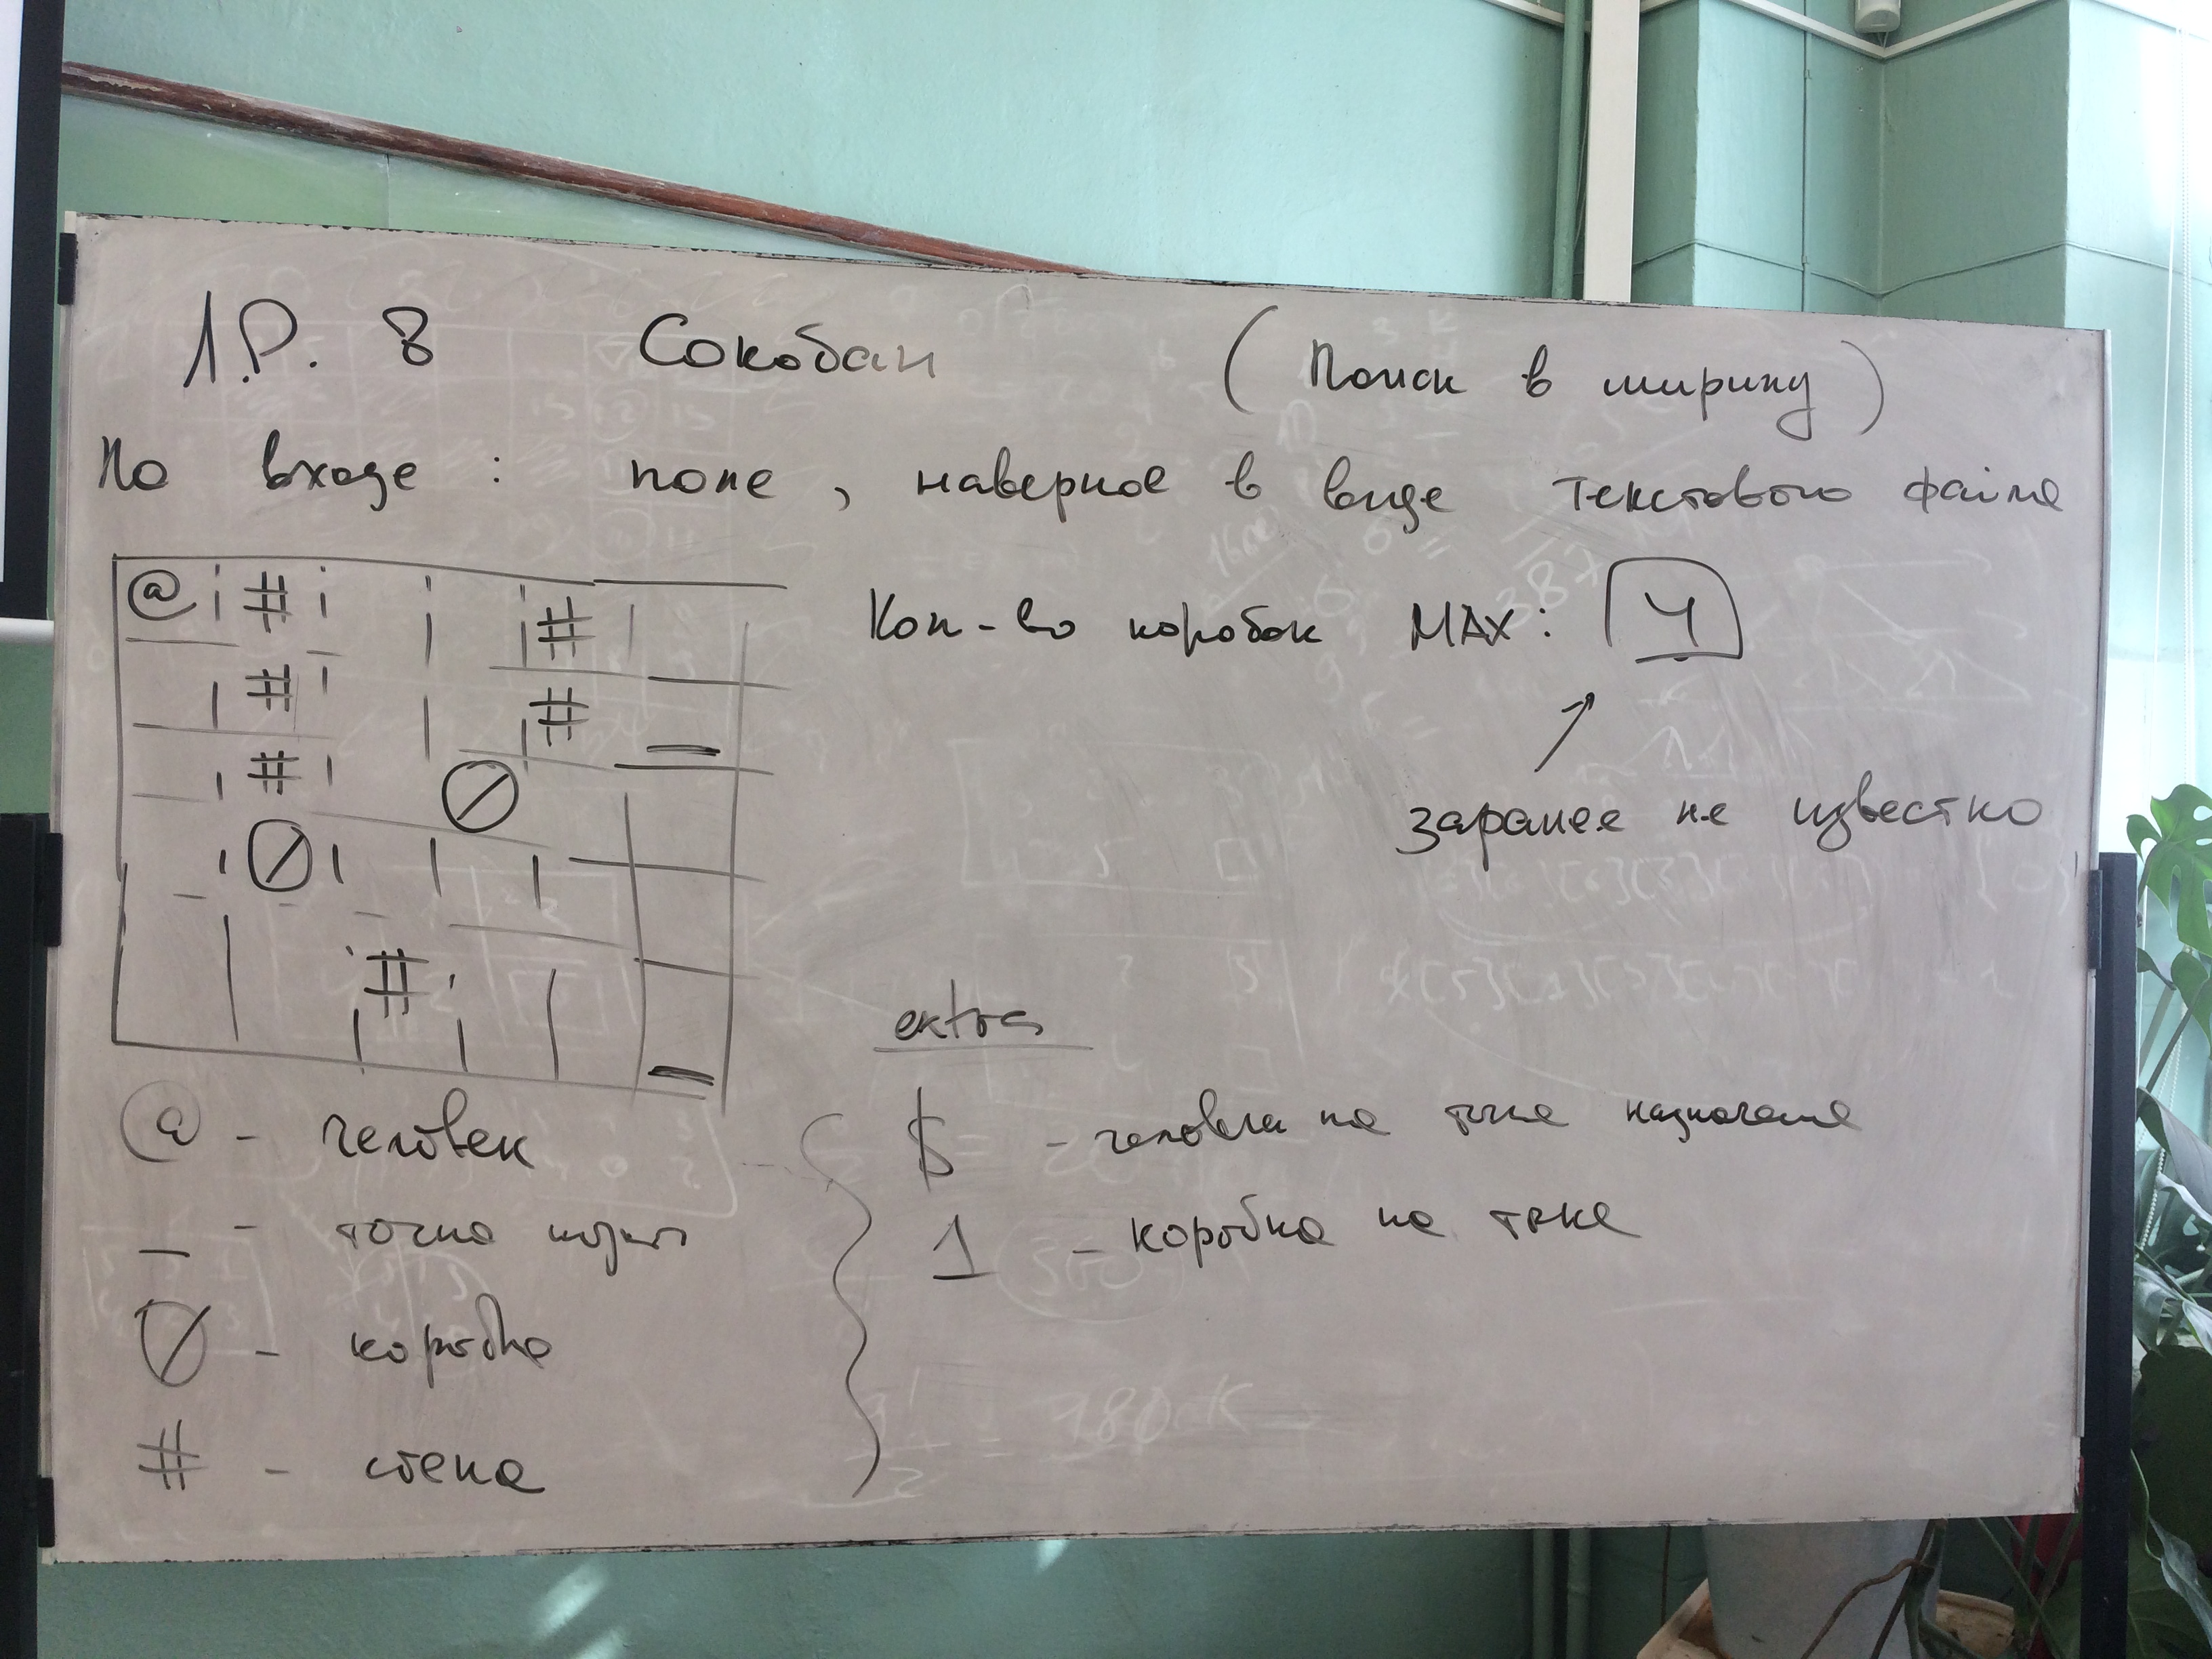 Л.Р. 8 Сокобан (Поиск в ширину)
На входе : поле , наверное в виде текстового файла
@ # #
# # _
# 0
0
#
_
Кол-во коробок MAX: 4
заранее не известно
@ - человек
_ - точка
0 - коробка
# - стена
extra
$ - человек на точке назначения
1 - коробка на точке